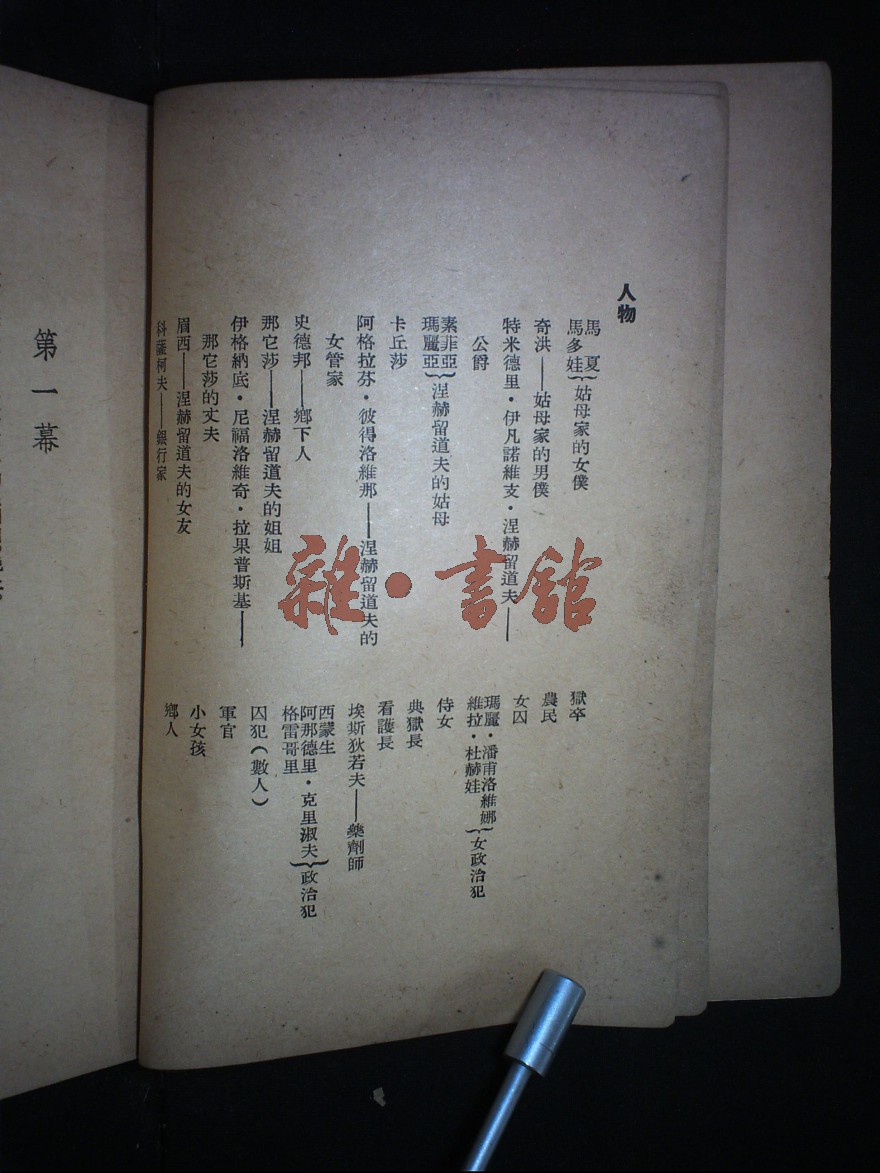 人物
馬夏
馬多娃}姑母家的女僕
奇洪——姑母家的男僕
特米德里·伊凡諾維支·涅赫留道夫——
公爵
素菲亞
瑪麗亞}涅赫留道夫的姑母
卡丘莎
阿格拉芬·彼得洛維那——涅赫留道夫的
女管家
史德邦——鄉下人
那它莎——涅赫留道夫的姐姐
伊格納底·尼福洛維奇·拉果普斯基——
那它莎的丈夫
眉西——涅赫留道夫的女友
科薩柯夫——銀行家
獄卒
農民
女囚
瑪麗·潘甫洛維娜
維拉·杜赫娃}女政治犯
侍女
典獄長
看護長
埃斯狄若夫——藥劑師
西蒙生
阿那德里·克里淑夫
格雷哥里}政治犯
囚犯(數人)
軍官
小女孩
鄉人
第一幕
雜·書館